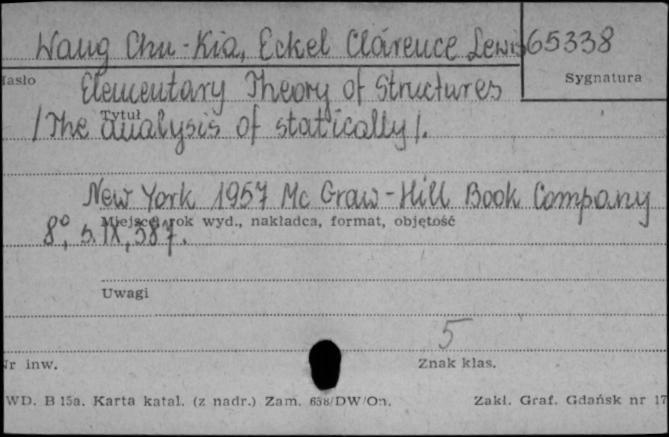 Wang Chu-Kia, Eckel Clarence Lewis 65338
Hasło Sygnatura
Elementary Theory of Structures
Tytuł
/The analysis of statically/.
New York 1957 Mc Graw-Hill Book Company
Miejsce, rok wyd., nakładca, format, objętość
8°, s. IX, 387.
Uwagi
5
Nr inw. Znak klas.
WD. B 15a. Karta katal. (z nadr.) Zam. 638/DW/On. Zakł. Graf. Gdańsk nr 17